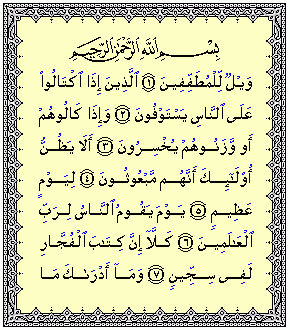 بِسْمِ ٱللَّهِ ٱلرَّحْمَٰنِ ٱلرَّحِيمِ
وَيْلٌ لِّلْمُطَفِّفِينَ ١ ٱلَّذِينَ إِذَا ٱكْتَالُوا۟
عَلَى ٱلنَّاسِ يَسْتَوْفُونَ ٢ وَإِذَا كَالُوهُمْ
أَو وَّزَنُوهُمْ يُخْسِرُونَ ٣ أَلَا يَظُنُّ
أُو۟لَٰٓئِكَ أَنَّهُم مَّبْعُوثُونَ ٤ لِيَوْمٍ
عَظِيمٍ ٥ يَوْمَ يَقُومُ ٱلنَّاسُ لِرَبِّ
ٱلْعَٰلَمِينَ ٦ كَلَّآ إِنَّ كِتَٰبَ ٱلْفُجَّارِ
لَفِى سِجِّينٍ ٧ وَمَآ أَدْرَىٰكَ مَا